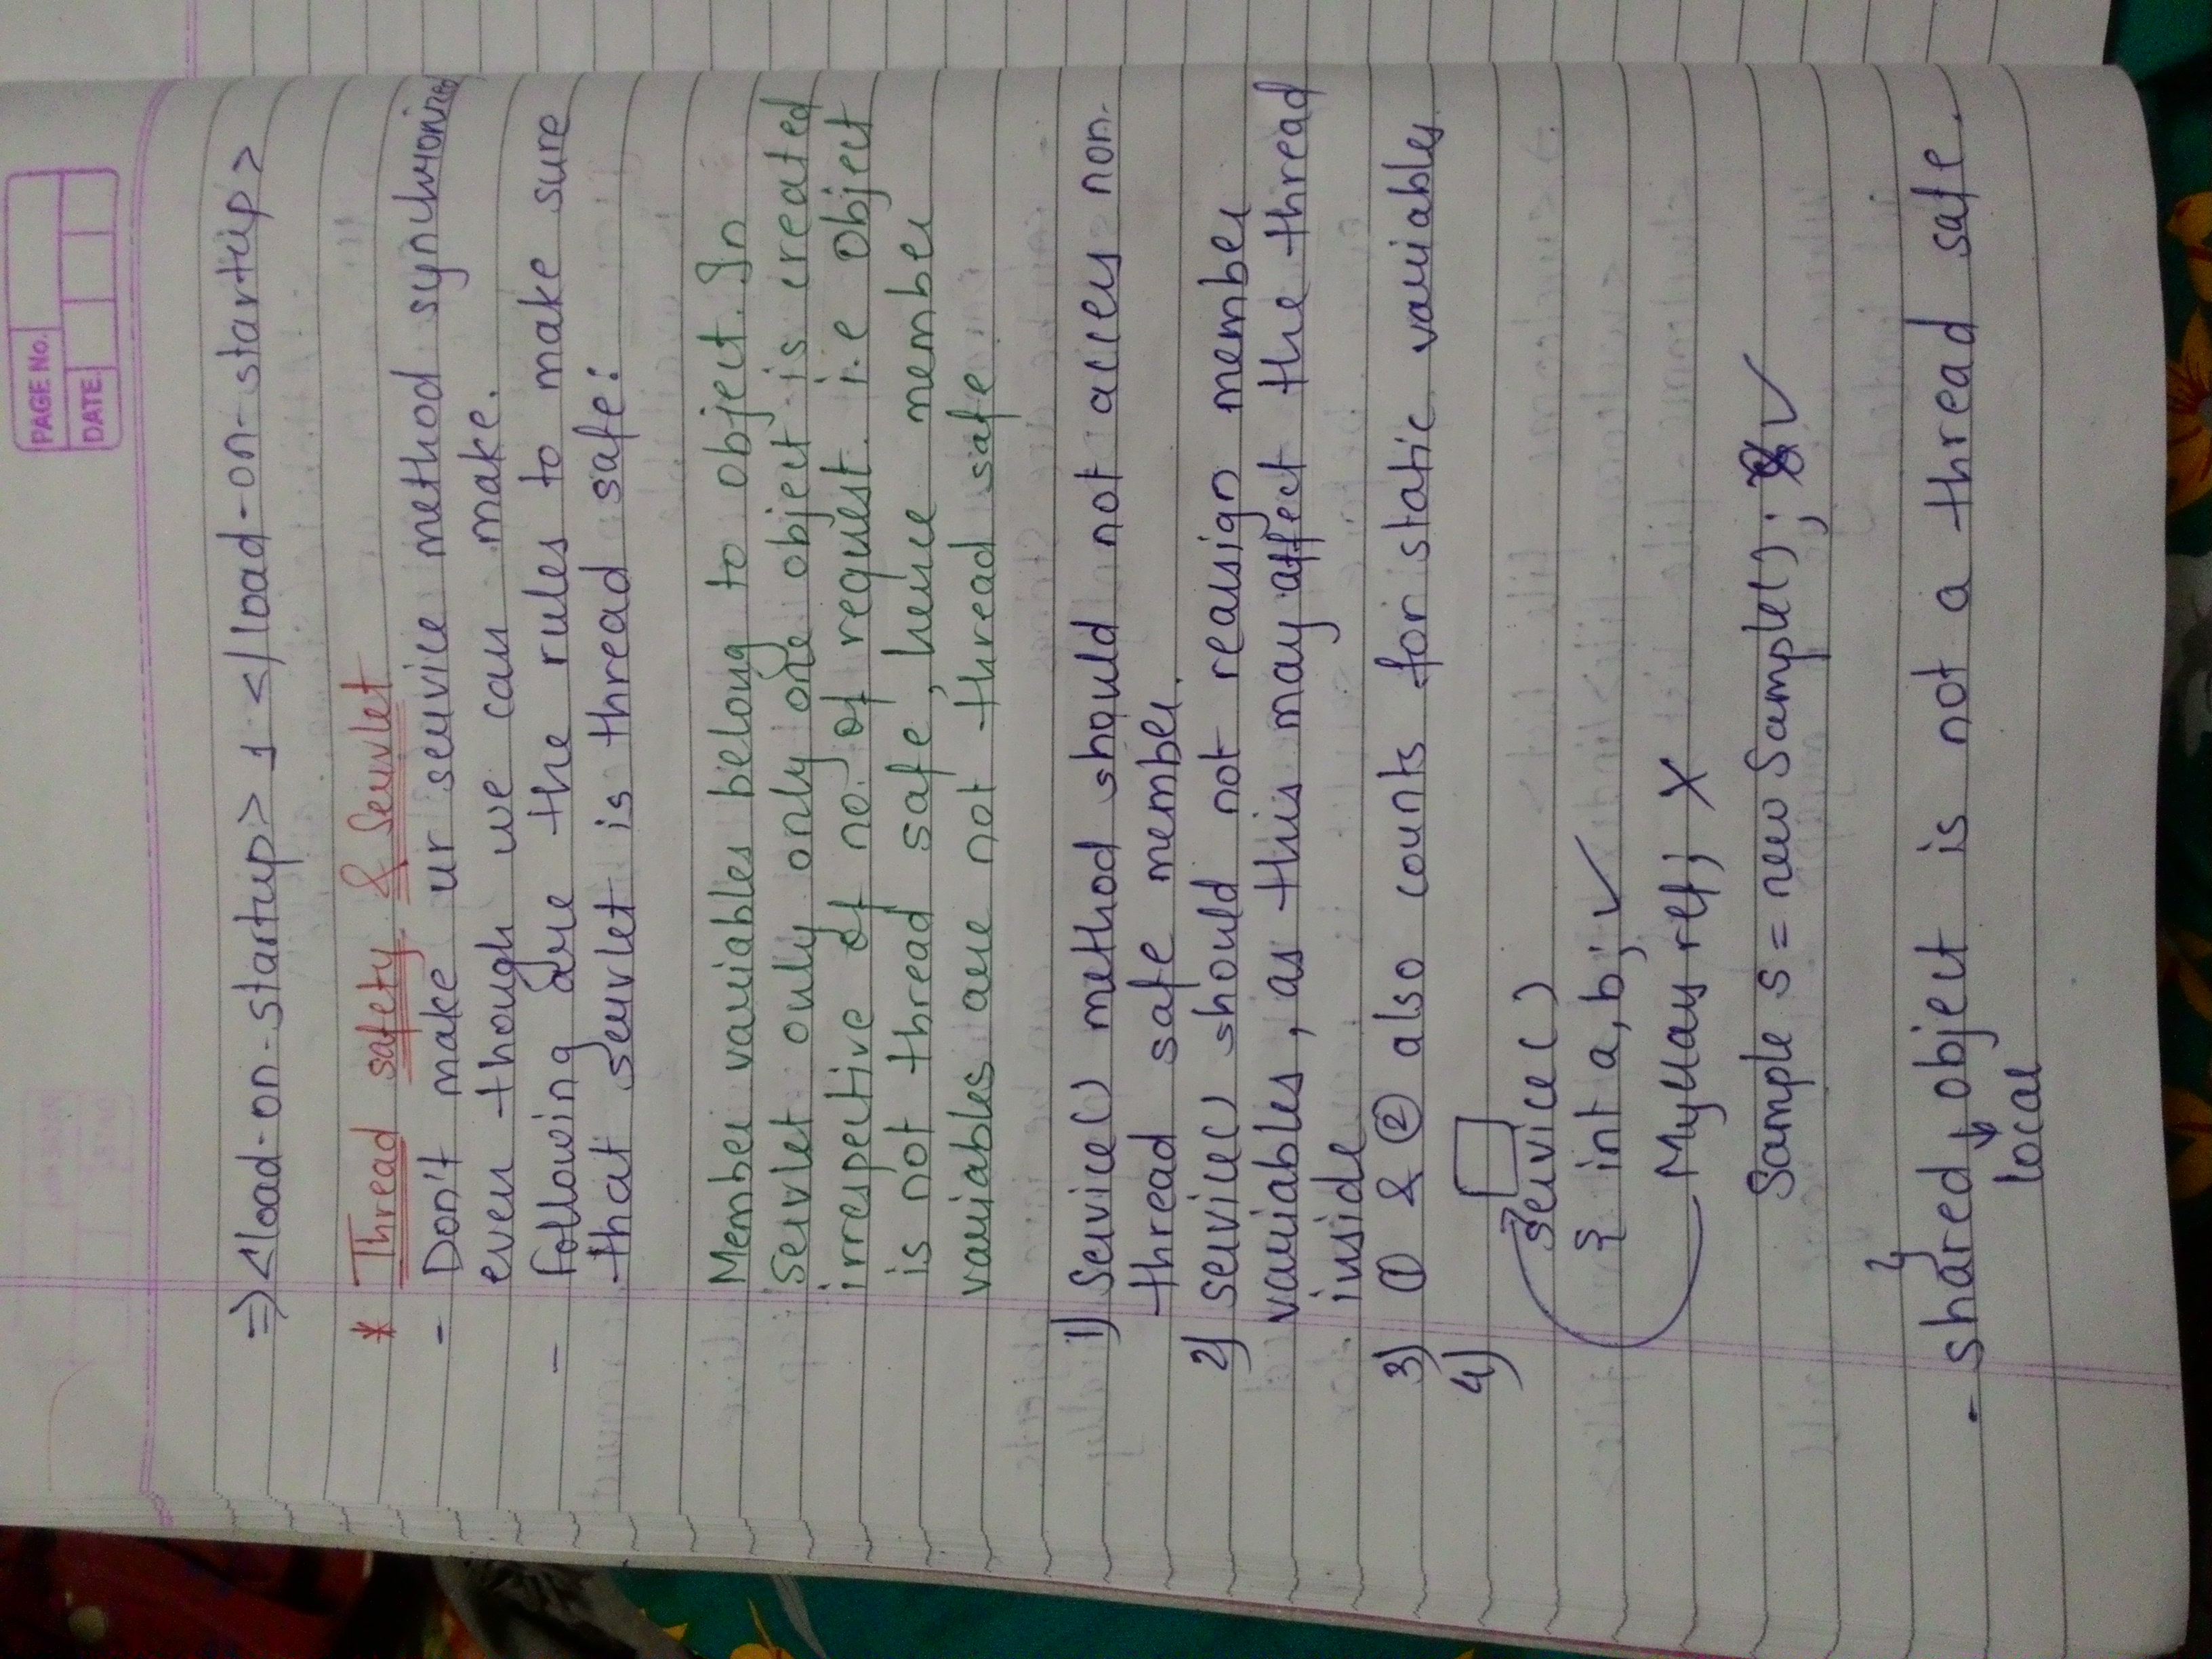 PAGE No.
DATE
⇒ <load-on-startup> 1 </load-on-startup>
* Thread safety & Servlet
- Don't make ur service method synchronized
even though we can make.
- Following are the rules to make sure
that servlet is thread safe:
Member variables belong to object. In
servlet only only one object is created
irrespective of no. of request. i.e object
is not thread safe, hence member
variables are not thread safe
1) Service() method should not access non-
thread safe member.
2) service() should not reassign member
variables, as this may affect the thread
inside
3) ① & ② also counts for static variables
4)
service()
{ int a, b; ✓
ref; X
Sample s = new Sample(); ✓
}
- shared object is not a thread safe.
local